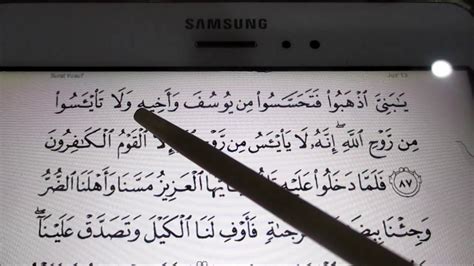 SAMSUNG
Surat Yusuf
Juz 13
يَـٰبَنِىَّ ٱذْهَبُوا۟ فَتَحَسَّسُوا۟ مِن يُوسُفَ وَأَخِيهِ وَلَا تَا۟يْـَٔسُوا۟
مِن رَّوْحِ ٱللَّهِ ۖ إِنَّهُۥ لَا يَا۟يْـَٔسُ مِن رَّوْحِ ٱلْقَوْمُ ٱلْكَـٰفِرُونَ
٨٧ فَلَمَّا دَخَلُوا۟ عَلَيْهِ ٱلْعَزِيزُ مَسَّنَا وَأَهْلَنَا ٱلضُّرُّ
وَجِئْنَا فَأَوْفِ لَنَا ٱلْكَيْلَ وَتَصَدَّقْ عَلَيْنَآ ۖ